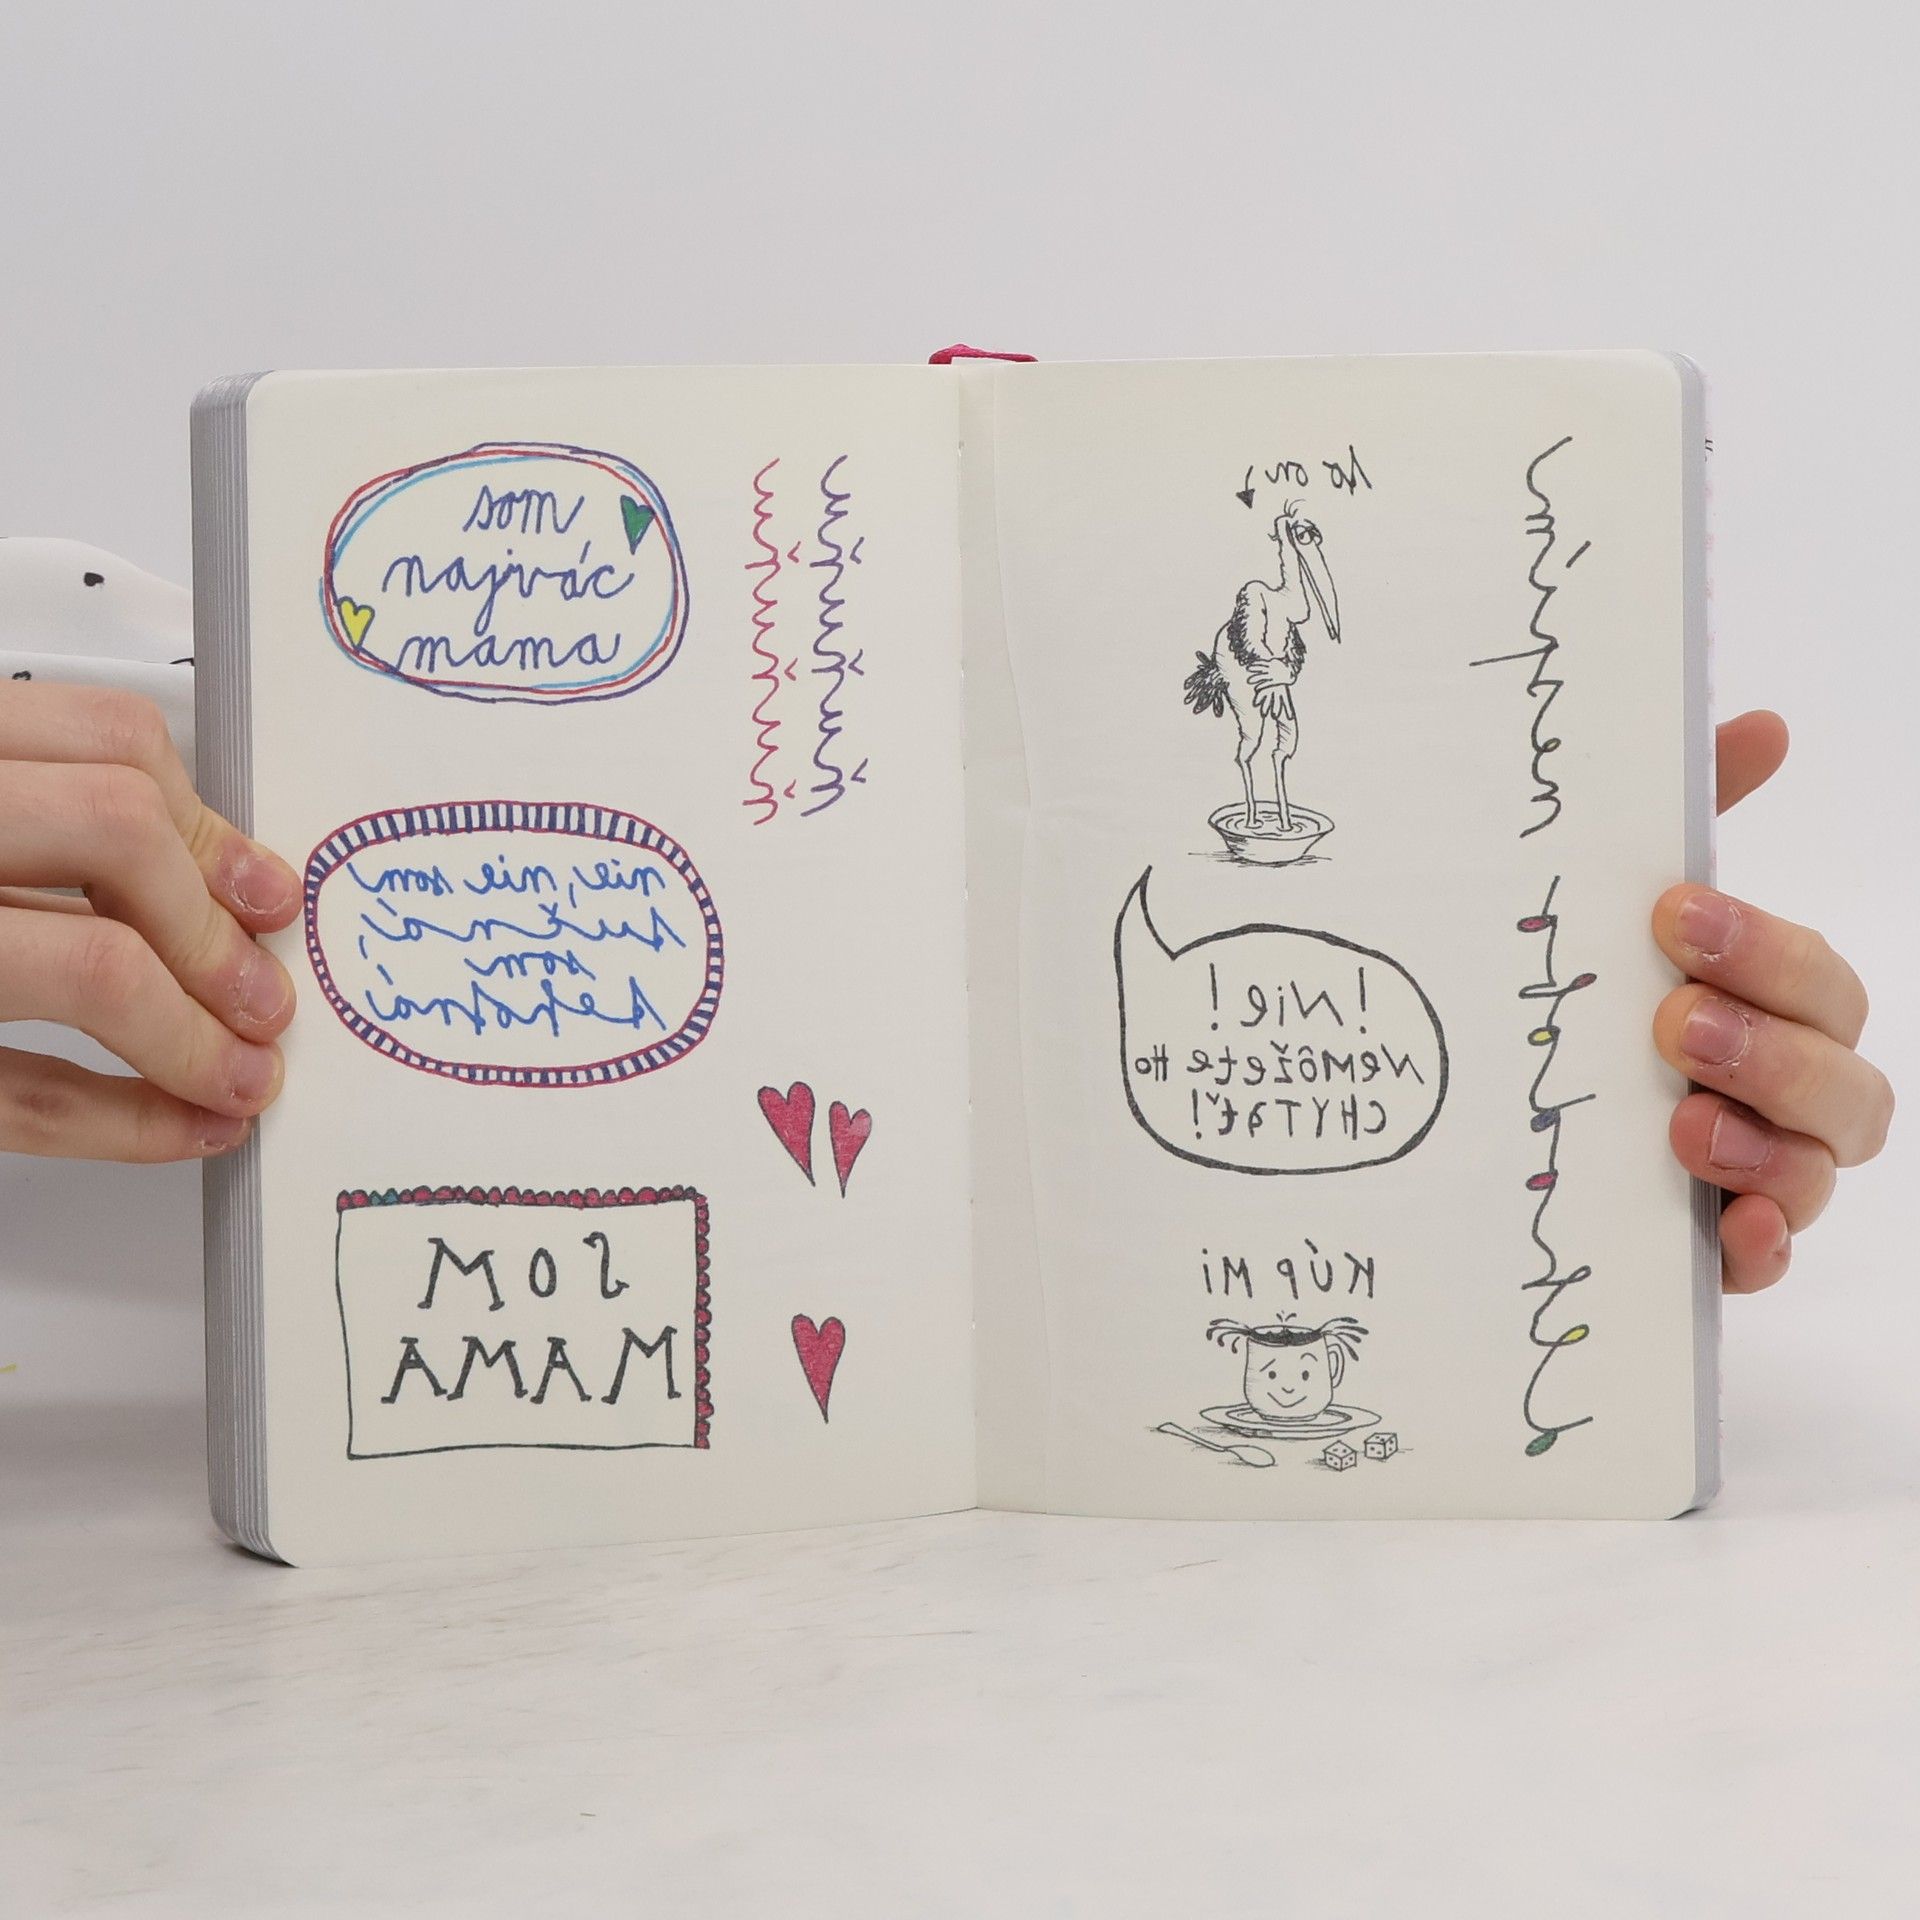 som
najvác
mama
nie, nie som
tučná,
som
tehotná
SOM
MAMA
to on
! Nie !
Nemôžete Ho
CHYTAť!
KÚP Mi